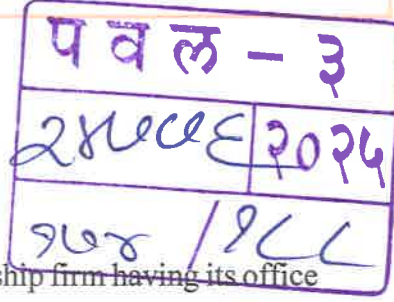 प व ल - ३
२४७७६ २०२५
१७४ / १८८
ship firm having its office